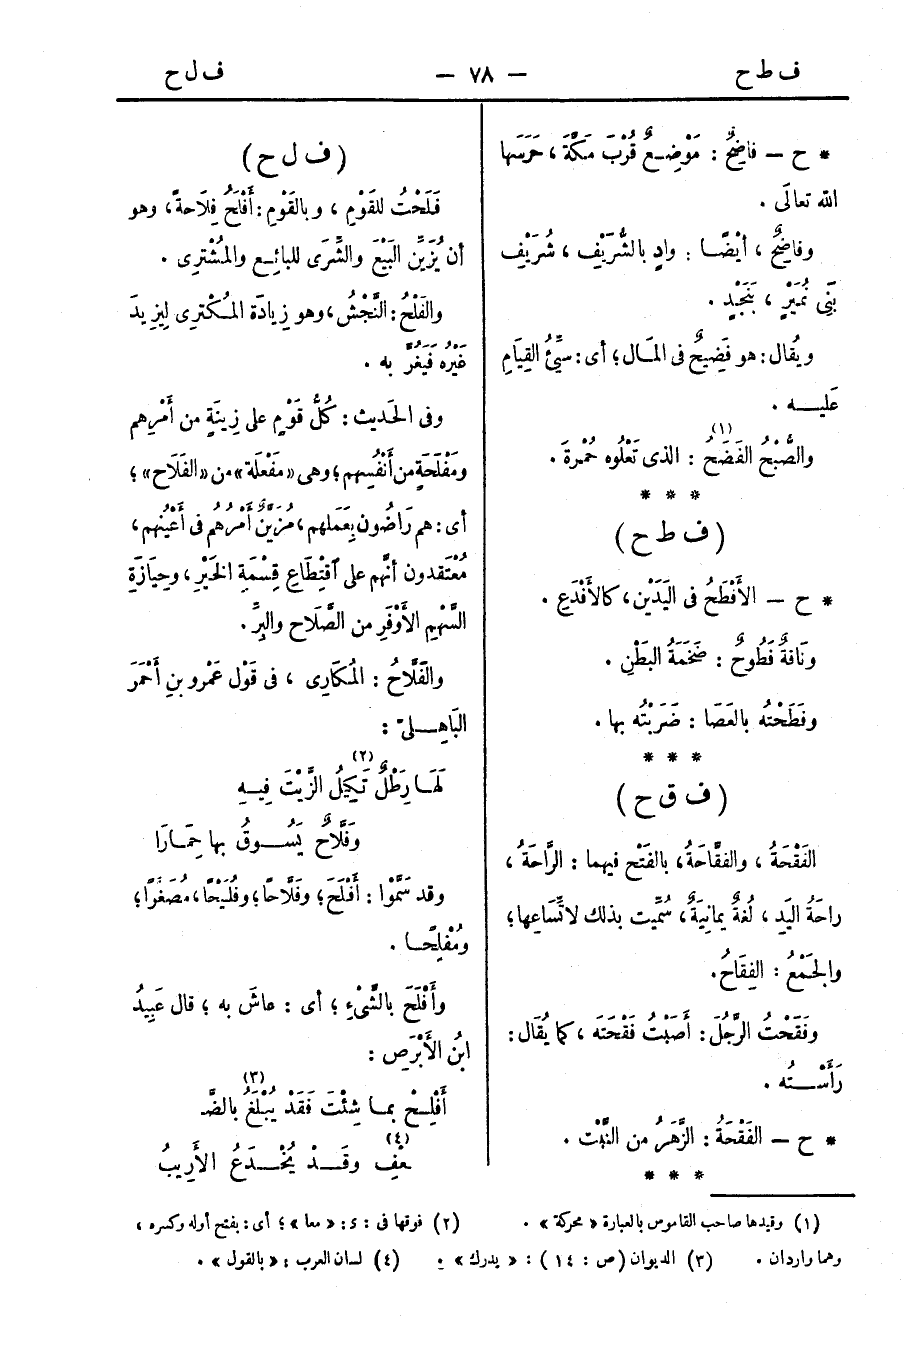 ف ط ح — ٧٨ — ف ل ح
* ح — فاضِحٌ : مَوْضِعٌ قُرْبَ مَكَّةَ ، حَرَسَها
الله تعالَى .
وفاضِحٌ ، أَيْضًا : وادٍ بالشُّرَيْفِ ، شُرَيْفِ
بَنِى نُمَيْرٍ ، بنَجْدٍ .
ويُقال : هو فَضِيحٌ فى المَال ؛ أى : سَيِّئُ القِيَامِ
عَليه .
والصُّبْحُ الفَضَحُ (١) : الذى تَعْلُوه حُمْرةَ .
* * *
(ف ط ح)
* ح — الأَفْطَحُ فى اليَدَيْن ، كالأَفْدَعِ .
ونَاقةٌ فَطُوحٌ : ضَخمَةُ البَطْنِ .
وفَطَحْتُه بالعَصَا : ضَرَبْتُه بها .
* * *
(ف ق ح)
الفَقْحَةُ ، والفقَّاحَةُ ، بالفَتْح فيهما : الرَّاحَةُ ،
راحَةُ اليَدِ ، لُغةٌ يمانيَةٌ ، سُمِّيت بذلك لاتِّساعِها ؛
والجَمْعُ : الفِقَاحُ .
وفَقَحْتُ الرَّجُلَ : أَصَبْتُ فَقْحَتَه ، كما يُقَال :
رَأَسْتُه .
* ح — الفَقْحَةُ : الزَّهَرُ من النَّبْت .
* * *
(ف ل ح)
فَلَحْتُ للقَوْمِ ، وبالقَوْمِ : أَفْلَحُ فِلَاحةً ، وهو
أن يُزَيِّنَ البَيْعَ والشِّرَى للبائِع والمُشْتَرِى .
والفَلْحُ : النَّجْشُ ، وهو زِيادَة المُكْتَرِى لِيَزِيدَ
غَيْرُه فَيغُرَّ به .
وفى الحَديث : كُلُّ قَوْمٍ على زِينَةٍ من أَمْرِهم
ومَفْلَحَةٍ من أَنْفُسِهم ؛ وهى «مَفْعَلَة» من «الفَلَاح» ؛
أى : هم رَاضُون بعَمَلهم ، مُزَيَّنٌ أَمرُهم فى أَعْيُنهم ،
مُعْتَقدون أنَّهم على اقْتِطَاعِ قِسْمَةِ الخَيْرِ ، وحِيَازَةِ
السَّهْمِ الأَوْفَرِ من الصَّلَاح والبِرِّ .
والفَلَّاحُ : المُكَارِى ، فى قَوْل عَمْرو بنِ أَحْمَرَ
البَاهِلىّ :
لَهَا رَطْلٌ (٢) تَكِيلُ الزَّيْتَ فِيهِ
وَفَلَّاحٌ يَسُوقُ بها حِمَارَا
وقد سَمَّوْا : أَفْلَحَ ؛ وفَلَّاحًا ؛ وفُلَيْحًا ، مُصَغَّرًا ؛
ومُفْلِحًا .
وأَفْلَحَ بالشَّىْءِ ؛ أى : عاشَ به ؛ قال عَبِيدُ
ابنُ الأَبْرَص :
أَفْلِحْ بما شِئْتَ فَقَدْ يُبْلَغُ (٣) بالضَّـ
ـعْفِ (٤) وقَدْ يُخْدَعُ الأَرِيبُ
(١) وقيدها صاحب القاموس بالعبارة « محركة » . (٢) فوقها فى : s : « معا » ؛ أى : بفتح أوله وكسره ،
وهما واردان . (٣) الديوان (ص : ١٤) : « يدرك » . (٤) لسان العرب : « بالقول » .